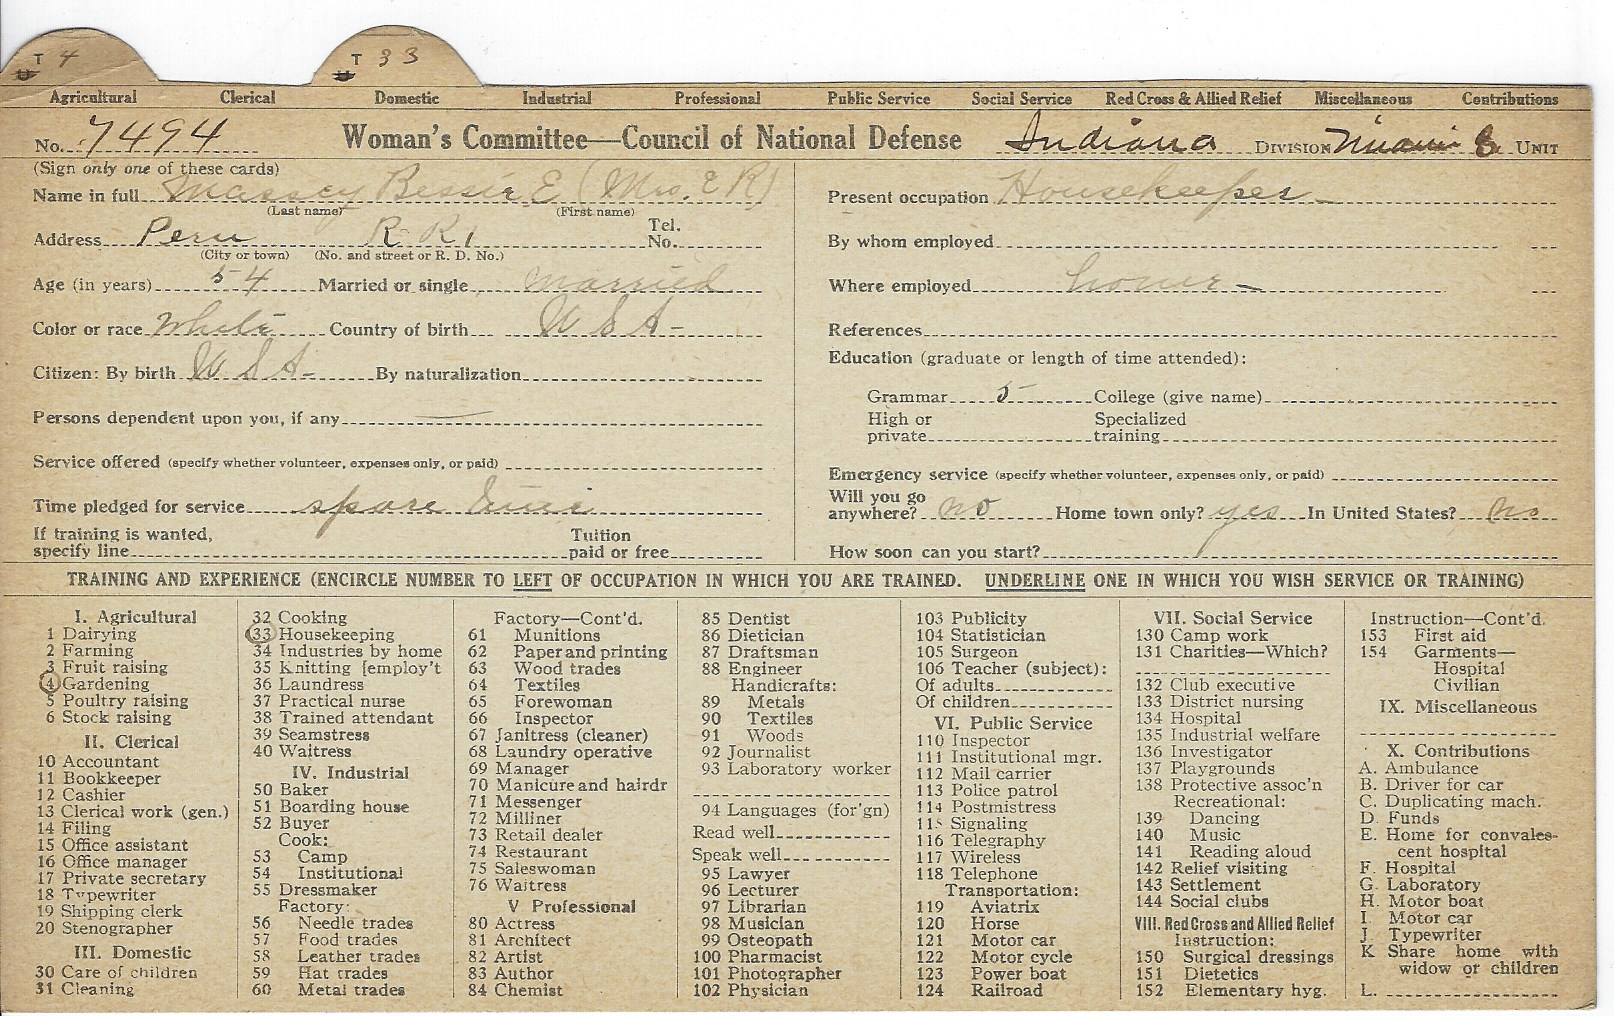 T 4 T 33
U U
Agricultural Clerical Domestic Industrial Professional Public Service Social Service Red Cross & Allied Relief Miscellaneous Contributions
No. 7494 Woman's Committee—Council of National Defense Indiana DIVISION Miami 8 UNIT
(Sign only one of these cards)
Name in full Massey Bessie E (Mrs. E R)
(Last name) (First name)
Address Peru R R 1 Tel. No.
(City or town) (No. and street or R. D. No.)
Age (in years) 54 Married or single married
Color or race White Country of birth U S A-
Citizen: By birth U S A- By naturalization
Persons dependent upon you, if any —
Service offered (specify whether volunteer, expenses only, or paid)
Time pledged for service spare time
If training is wanted, specify line Tuition paid or free
Present occupation Housekeeper-
By whom employed
Where employed home-
References
Education (graduate or length of time attended):
Grammar 5- College (give name)
High or private Specialized training
Emergency service (specify whether volunteer, expenses only, or paid)
Will you go anywhere? no Home town only? yes In United States? no
How soon can you start?
TRAINING AND EXPERIENCE (ENCIRCLE NUMBER TO LEFT OF OCCUPATION IN WHICH YOU ARE TRAINED. UNDERLINE ONE IN WHICH YOU WISH SERVICE OR TRAINING)
I. Agricultural
1 Dairying
2 Farming
3 Fruit raising
4 Gardening
5 Poultry raising
6 Stock raising
II. Clerical
10 Accountant
11 Bookkeeper
12 Cashier
13 Clerical work (gen.)
14 Filing
15 Office assistant
16 Office manager
17 Private secretary
18 Typewriter
19 Shipping clerk
20 Stenographer
III. Domestic
30 Care of children
31 Cleaning
32 Cooking
33 Housekeeping
34 Industries by home
35 Knitting [employ't
36 Laundress
37 Practical nurse
38 Trained attendant
39 Seamstress
40 Waitress
IV. Industrial
50 Baker
51 Boarding house
52 Buyer
Cook:
53 Camp
54 Institutional
55 Dressmaker
Factory:
56 Needle trades
57 Food trades
58 Leather trades
59 Hat trades
60 Metal trades
Factory—Cont'd.
61 Munitions
62 Paper and printing
63 Wood trades
64 Textiles
65 Forewoman
66 Inspector
67 Janitress (cleaner)
68 Laundry operative
69 Manager
70 Manicure and hairdr
71 Messenger
72 Milliner
73 Retail dealer
74 Restaurant
75 Saleswoman
76 Waitress
V Professional
80 Actress
81 Architect
82 Artist
83 Author
84 Chemist
85 Dentist
86 Dietician
87 Draftsman
88 Engineer
Handicrafts:
89 Metals
90 Textiles
91 Woods
92 Journalist
93 Laboratory worker
94 Languages (for'gn)
Read well
Speak well
95 Lawyer
96 Lecturer
97 Librarian
98 Musician
99 Osteopath
100 Pharmacist
101 Photographer
102 Physician
103 Publicity
104 Statistician
105 Surgeon
106 Teacher (subject):
Of adults
Of children
VI. Public Service
110 Inspector
111 Institutional mgr.
112 Mail carrier
113 Police patrol
114 Postmistress
115 Signaling
116 Telegraphy
117 Wireless
118 Telephone
Transportation:
119 Aviatrix
120 Horse
121 Motor car
122 Motor cycle
123 Power boat
124 Railroad
VII. Social Service
130 Camp work
131 Charities—Which?
132 Club executive
133 District nursing
134 Hospital
135 Industrial welfare
136 Investigator
137 Playgrounds
138 Protective assoc'n
Recreational:
139 Dancing
140 Music
141 Reading aloud
142 Relief visiting
143 Settlement
144 Social clubs
VIII. Red Cross and Allied Relief
Instruction:
150 Surgical dressings
151 Dietetics
152 Elementary hyg.
Instruction—Cont'd.
153 First aid
154 Garments—
Hospital
Civilian
IX. Miscellaneous
X. Contributions
A. Ambulance
B. Driver for car
C. Duplicating mach.
D. Funds
E. Home for convales-
cent hospital
F. Hospital
G. Laboratory
H. Motor boat
I. Motor car
J. Typewriter
K Share home with
widow or children
L.